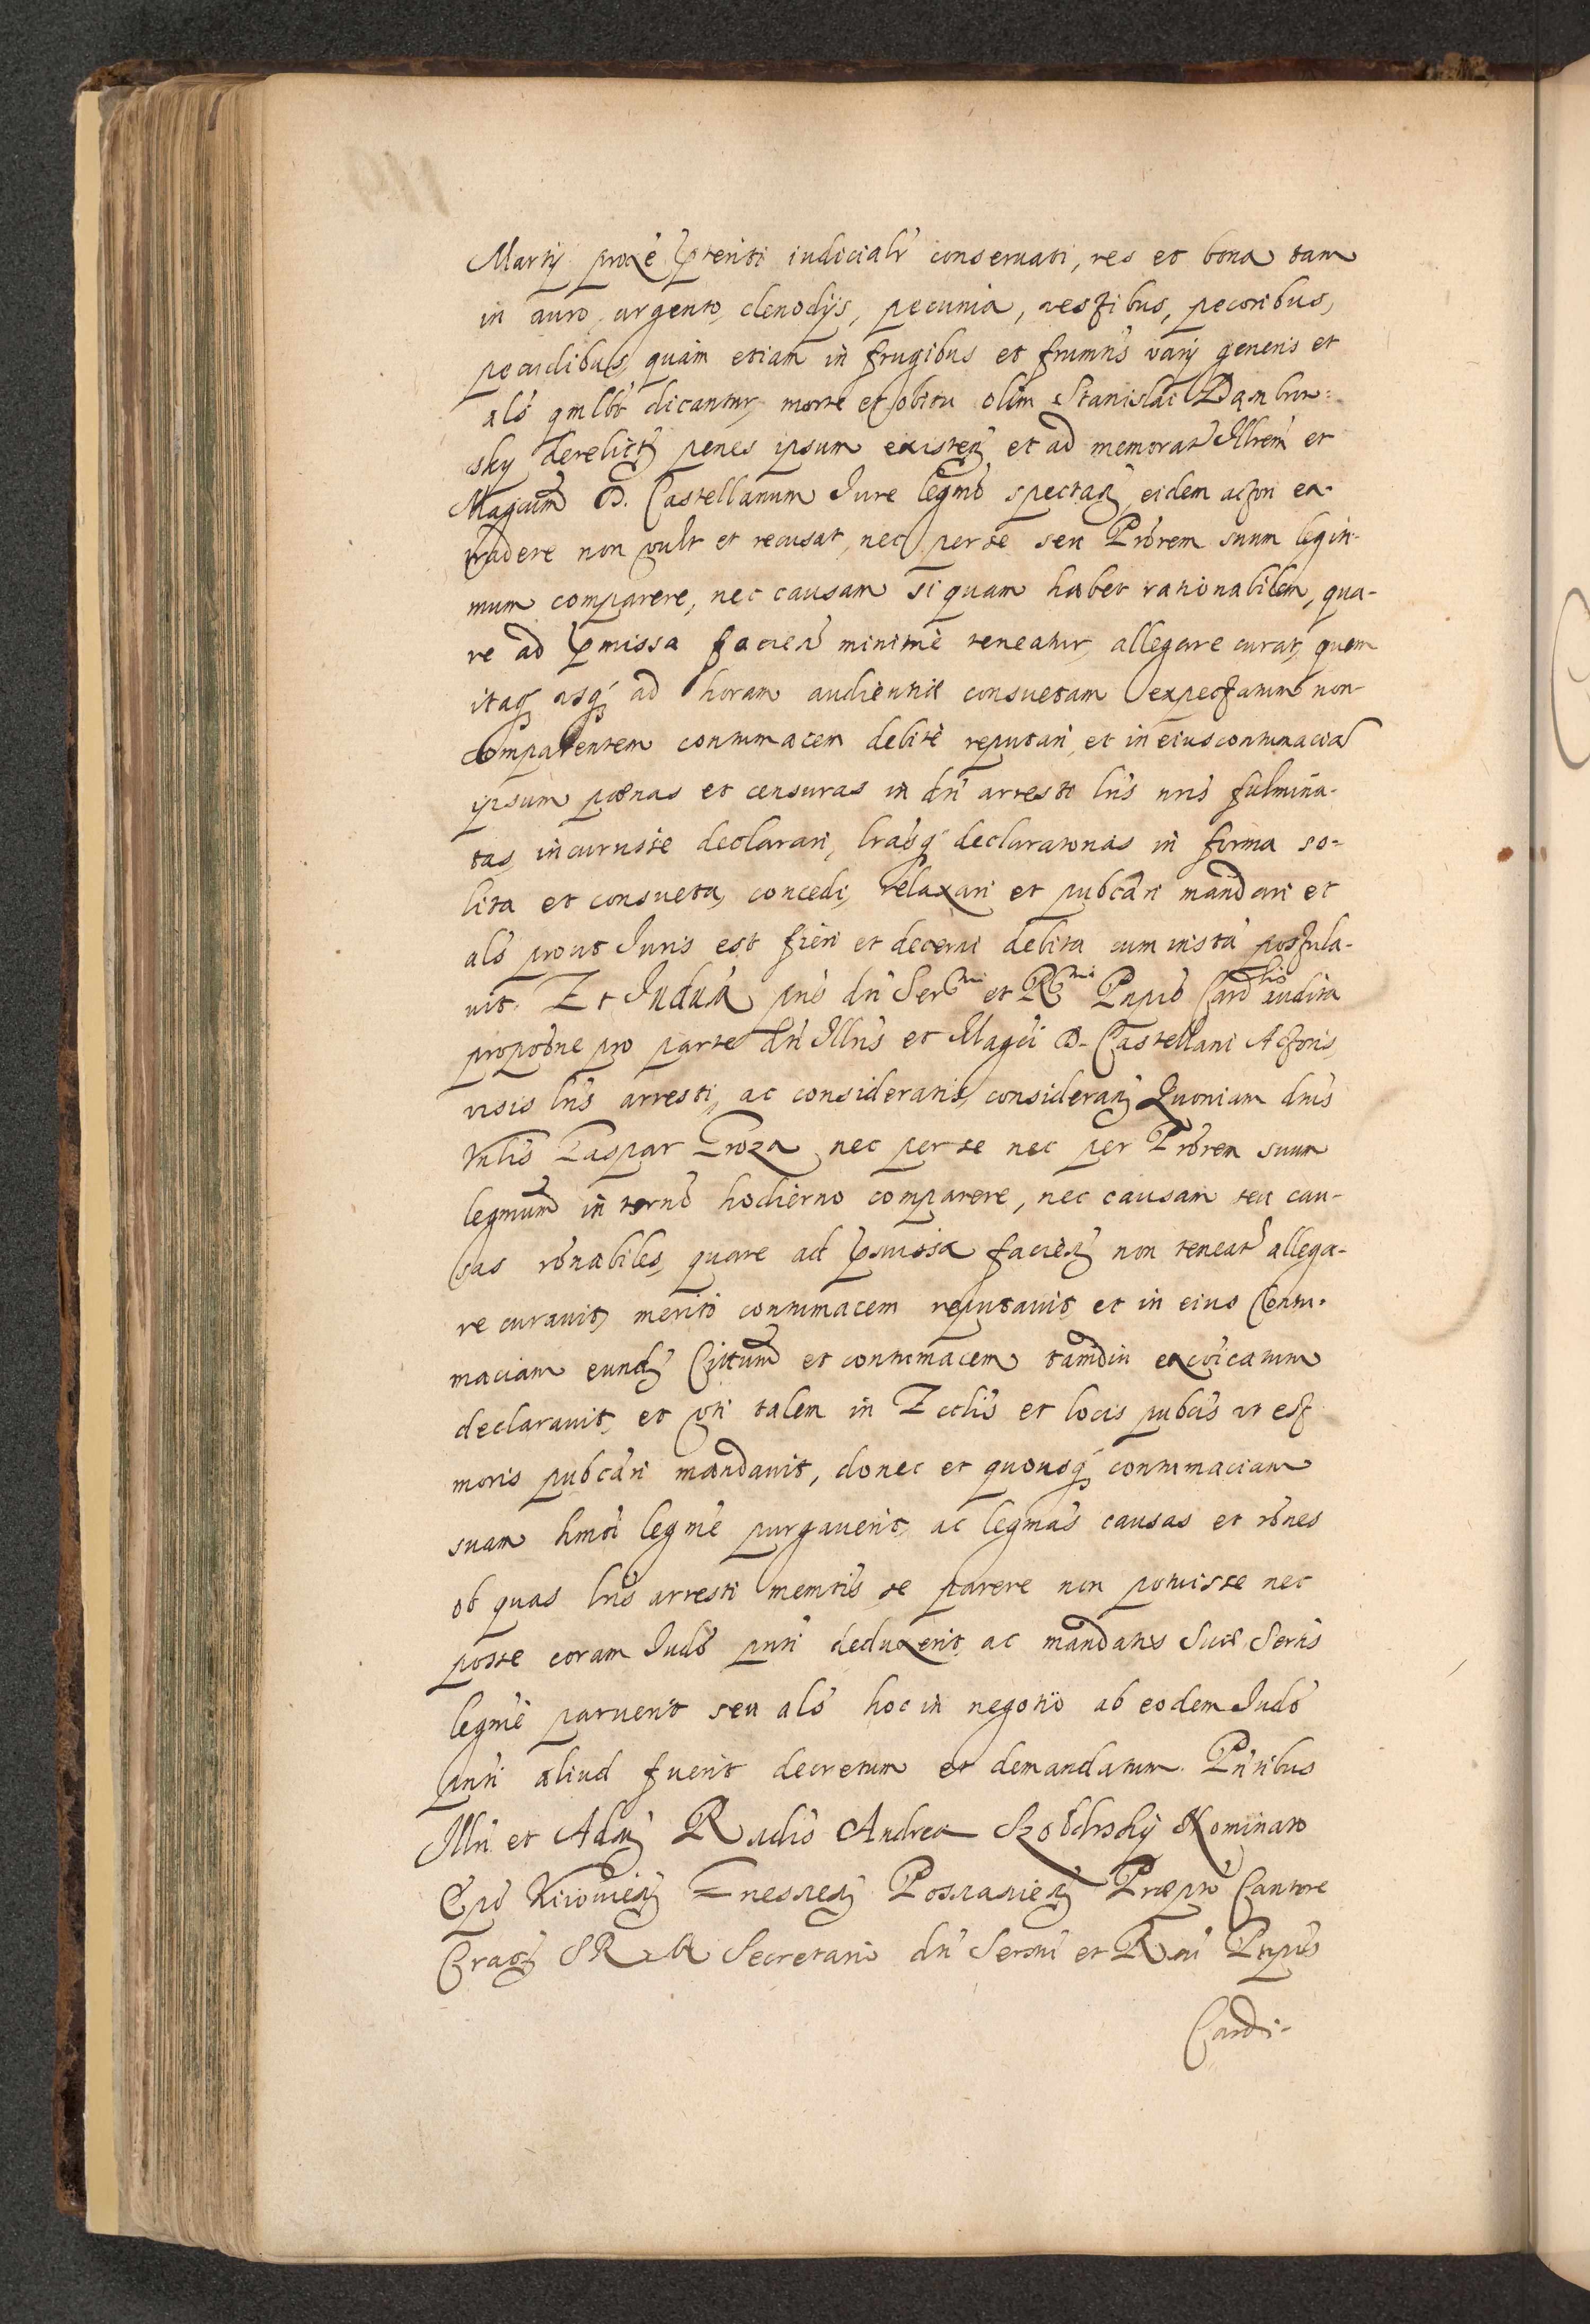 Martij proxe pteriti iudicialr conseruati, res et bona tam
in auro, argento, clenodijs, pecunia, vestibus, pecoribus,
pecudibus, quam etiam in frugibus et frumtis varij generis et
als qmlbt dicantur, morte et obitu olim Stanislai Dambrow:
sky derelictz penes ipsum existen et ad memorat Illrem et
Magcum D. Castellanum Iure legmo spectan eidem actori ex-
tradere non vult et recusat, nec per se seu Procrem suum legiti-
mum comparere, nec causam si quam habet rationabilem, qua-
re ad pmissa facien minime teneatur, allegare curat, quem
itaq vsq ad horam audientiæ consuetam expectatum non
comparentem contumacem debite reputari, et in eius contumacia
ipsum pœnas et censuras in dti arresti lris nris fulmina-
tas, incurrisse declarari, lrasq declaratorias in forma so-
lita et consueta, concedi, relaxari et pubcari mandari et
als prout Iuris est fieri et decerni debita cum insta postula-
uit. Et Iudex pns dti Sermi et Rmi Pnpis Cardlis audita
propone pro parte dti Illris et Magci D. Castellani Actoris,
visis lris arresti, ac consideratis, consideran Quoniam dnus
Gaspar Groza nec per se nec per Procrem suum
legmum in termo hodierno comparere, nec causam seu cau-
sas ronabiles, quare ad pmissa facien non teneat allega-
re curauit, merito contumacem reputauit et in eius Contu-
maciam eundz Cittum et contumacem tamdiu excoicatum
declarauit, et vti talem in Ecclis et locis pubcis vt est
moris pubcari mandauit, donec et quousq contumaciam
suam hmoi legme purgauerit, ac legmas causas et rones
ob quas lris arresti memtis, se parere non potuisse nec
posse coram Iudce pnti deduxerit, ac mandatis Suæ Sertis
legme paruerit seu als hoc in negotio ab eodem Iudce
pnti aliud fuerit decretum et demandatum. Pntibus
Illri et Adm Rndis Andrea Szołdrsky Nominato
Epo Kiiouien Gnesnen Posnanien Præpto Cantore
Crac SRM Secretario dti Sermi et Rmi Pnpis
Cardi-